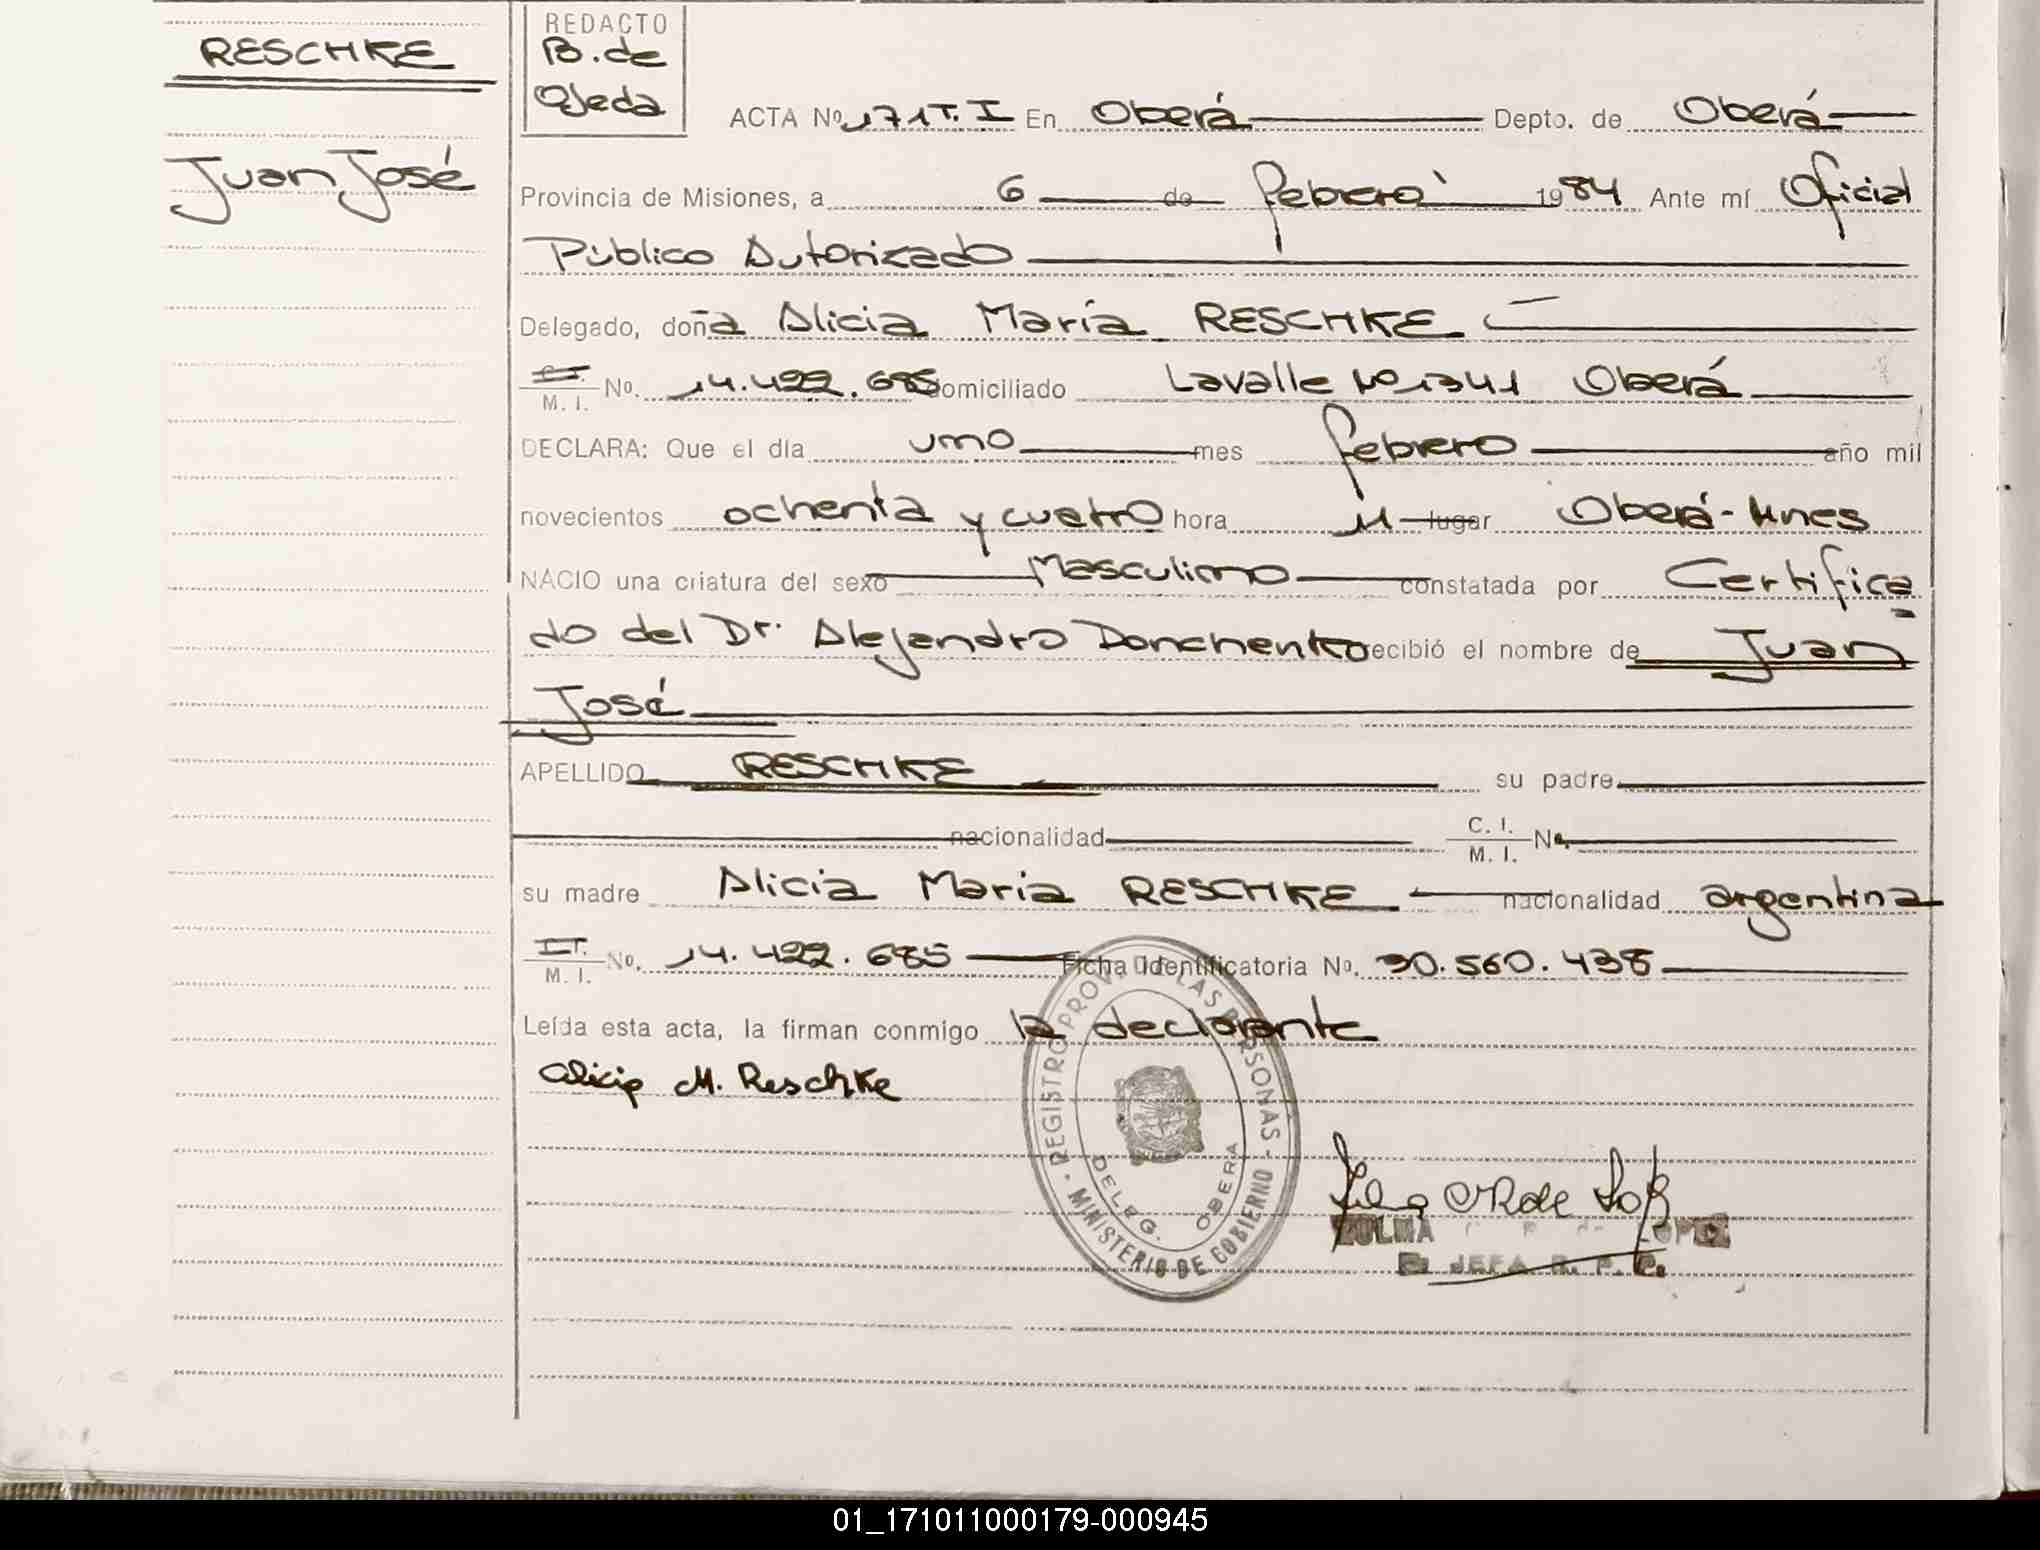 RESCHKE
Juan José
REDACTO
B. de
Ojeda
ACTA No 171 T. I En Oberá Depto. de Oberá
Provincia de Misiones, a 6 de febrero 1984 Ante mí Oficial
Público Autorizado
Delegado, doña Alicia María RESCHKE
C. I. M. I. No. 14.422.685 domiciliado Lavalle No 1341 Oberá
DECLARA: Que el día uno mes febrero año mil
novecientos ochenta y cuatro hora 11 lugar Oberá - Mnes
NACIO una criatura del sexo Masculino constatada por Certifica
do del Dr. Alejandro Donchenko recibió el nombre de Juan
José
APELLIDO RESCHKE su padre
nacionalidad C. I. M. I. No.
su madre Alicia Maria RESCHKE nacionalidad argentina
C. I. M. I. No. 14.422.685 Ficha Identificatoria No. 30.560.438
Leída esta acta, la firman conmigo la declarante
Alicia M. Reschke
REGISTRO PROV. DE LAS PERSONAS - MINISTERIO DE GOBIERNO -
DELEG. OBERA
ZULMA
JEFA R. P. C.
01_171011000179-000945